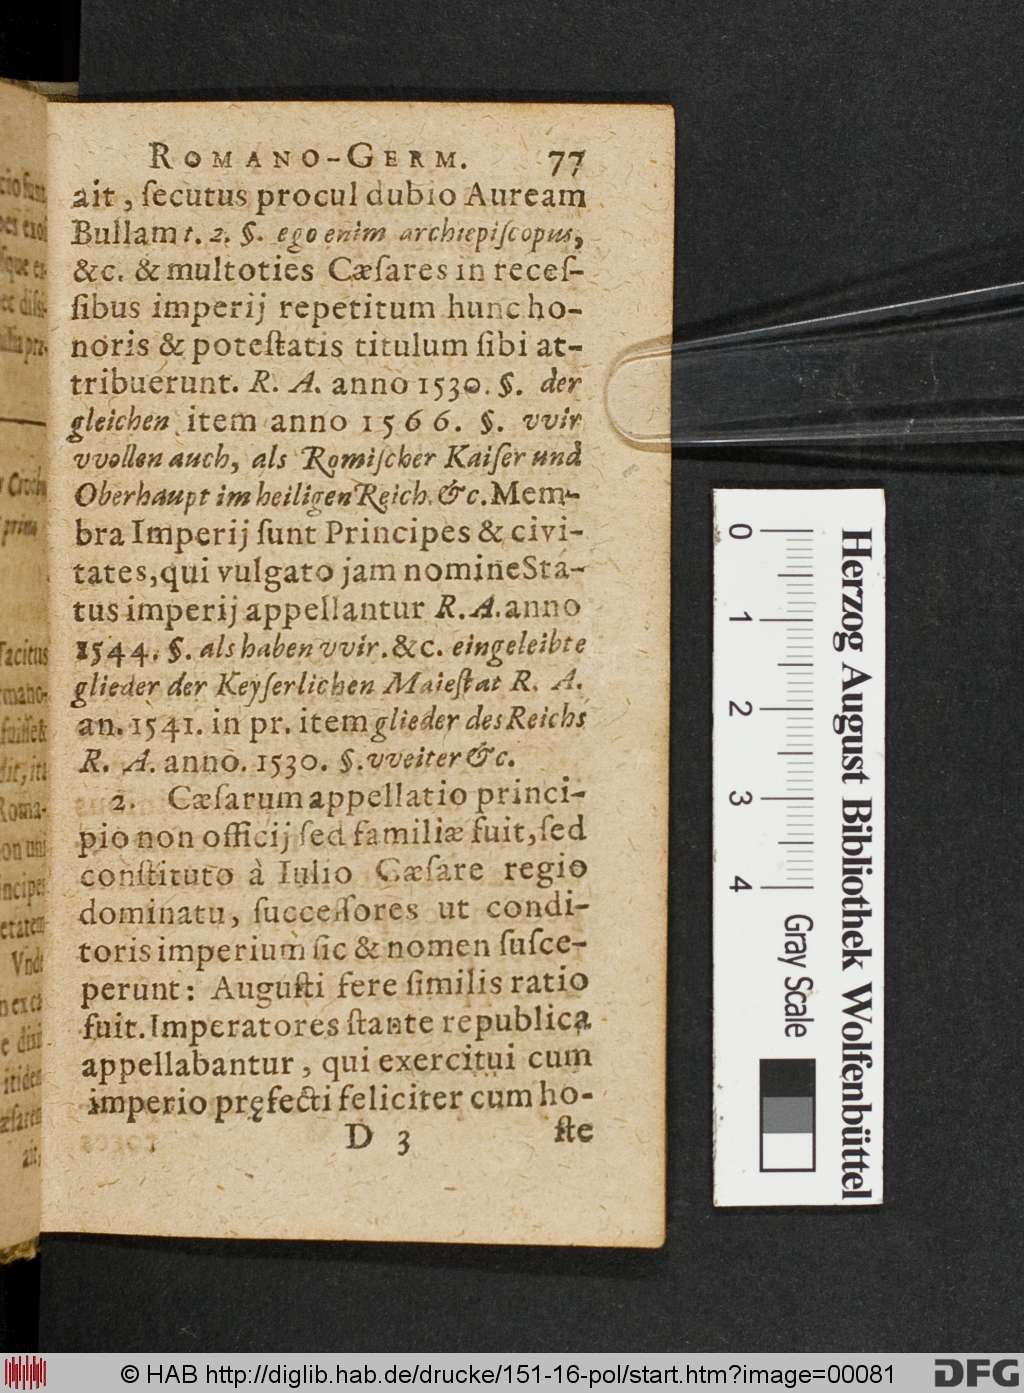 ROMANO-GERM. 77
ait, ſecutus procul dubio Auream
Bullam t. 2. §. ego enim archiepiſcopus,
&c. & multoties Cæſares in receſ-
ſibus imperij repetitum hunc ho-
noris & poteſtatis titulum ſibi at-
tribuerunt. R. A. anno 1530. §. der
gleichen item anno 1566. §. vvir
vvollen auch, als Romiſcher Kaiſer und
Oberhaupt im heiligen Reich. &c. Mem-
bra Imperij ſunt Principes & civi-
tates, qui vulgato jam nomine Sta-
tus imperij appellantur R. A. anno
1544. §. als haben vvir. &c. eingeleibte
glieder der Keyſerlichen Maieſtat R. A.
an. 1541. in pr. item glieder des Reichs
R. A. anno. 1530. §. vveiter &c.
2. Cæſarum appellatio princi-
pio non officij ſed familiæ fuit, ſed
conſtituto à Iulio Cæſare regio
dominatu, ſucceſſores ut condi-
toris imperium ſic & nomen ſuſce-
perunt: Auguſti fere ſimilis ratio
fuit. Imperatores ſtante republica
appellabantur, qui exercitui cum
imperio pręfecti feliciter cum ho-
D 3 ſte
Tacitus
Vnde
ait,
0 1 2 3 4
Gray Scale
Herzog August Bibliothek Wolfenbüttel
© HAB http://diglib.hab.de/drucke/151-16-pol/start.htm?image=00081
DFG